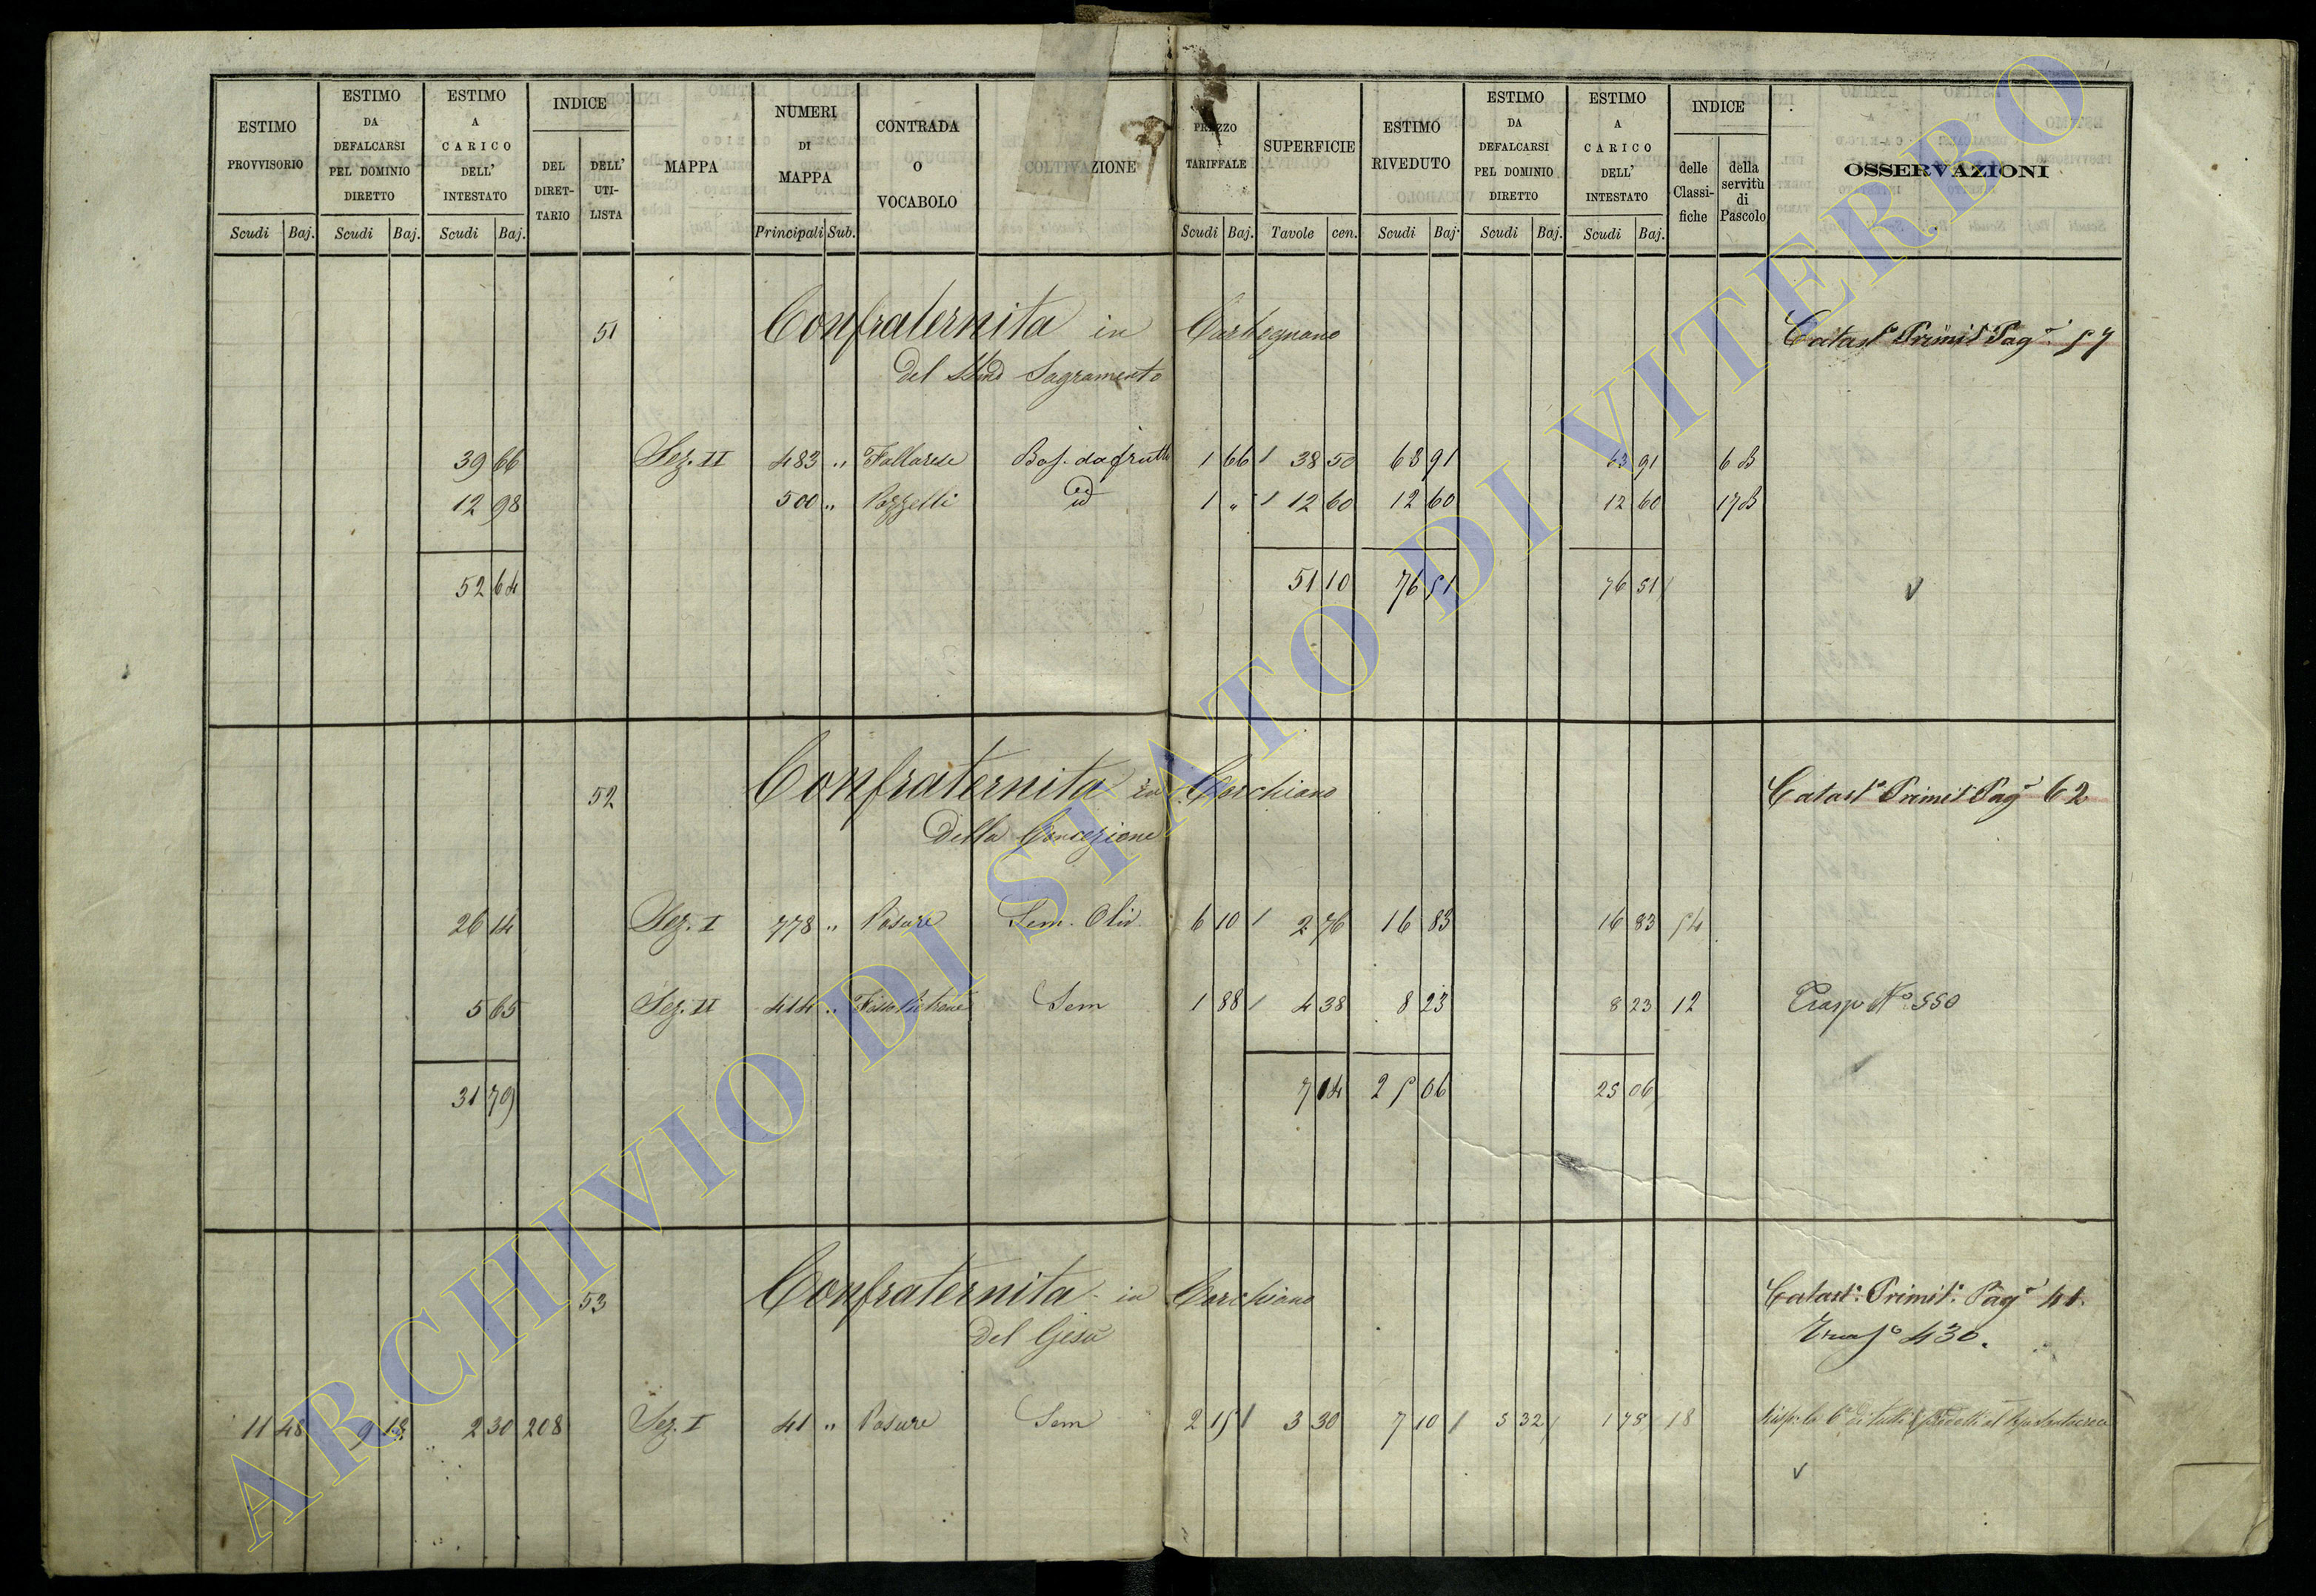 ESTIMO PROVVISORIO
ESTIMO DA DEFALCARSI PEL DOMINIO DIRETTO
ESTIMO A CARICO DELL' INTESTATO
INDICE
DEL DIRET-TARIO
DELL' UTI-LISTA
MAPPA
NUMERI DI MAPPA
CONTRADA O VOCABOLO
COLTIVAZIONE
PREZZO TARIFFALE
SUPERFICIE
ESTIMO RIVEDUTO
ESTIMO DA DEFALCARSI PEL DOMINIO DIRETTO
ESTIMO A CARICO DELL' INTESTATO
INDICE
delle Classi-fiche
della servitù di Pascolo
OSSERVAZIONI
Scudi Baj. Scudi Baj. Scudi Baj. Principali Sub. Scudi Baj. Tavole cen. Scudi Baj. Scudi Baj. Scudi Baj.
51 Confraternita in Carbognano Catast° Primit° Pag° 57
Del SSmo Sagramento
39 66 Sez. II 483 " Fallarese Bos. da frutto 1 66 38 50 63 91 63 91 6 B
12 98 500 " Pozzelli id 1 " 12 60 12 60 12 60 17 B
52 64 51 10 76 51 76 51
52 Confraternita in Corchiano Catast° Primit° Pag° 62
Della Concezione
26 14 Sez. I 778 " Pasure Sem. Oliv. 6 10 2 76 16 83 16 83 54
5 65 Sez. II 414 " Sem 1 88 4 38 8 23 8 23 12 Trasp N° 550
31 79 7 14 25 06 25 06
53 Confraternita in Corchiano Catast° Primit° Pag° 41.
Del Gesù Trasp° 430.
11 48 9 18 2 30 208 Sez. I 41 " Pasure Sem 2 15 3 30 7 10 5 32 1 78 18
ARCHIVIO DI STATO DI VITERBO